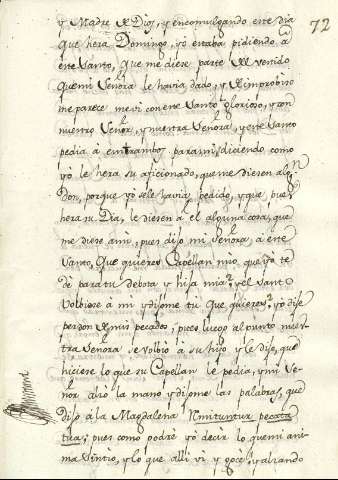 72
y Madre de Dios, y encomulgando este dia
que hera Domingo, yo estaba pidiendo â
este Santo, que me diese parte del vestido
que mi Señora le havia dado, y de improbiso
me parece me vi con este Santo glorioso, y con
nuestro Señor, y nuestra Señora, y este Santo
pedia á entrambos para mi, diciendo como
yo le hera su aficionado, que me diesen algn
Don, porque yo se le havia pedido, y que pues
hera su Dia, le diesen a el alguna cosa, que
me diese ami, pues dijo mi Señora, â este
Santo, Que quieres Capellan mio, que yo te
dê para tu debota y hija mia? y el Santo
Volbiose â mi y dijome tu Que quieres? yo dije
perdon de mis pecados; pues luego al punto nues-
tra Señora se volbio â su hijo y le dise, que
hiciese lo que su Capellan le pedia, y mi Se-
ñor alsô la mano y dijome las palabras, que
dijo â la Magdalena Remituntur pecata
tua; pues como podre yo decir lo que mi ani-
ma sintio, y lo que alli vi y gocê; y alsando